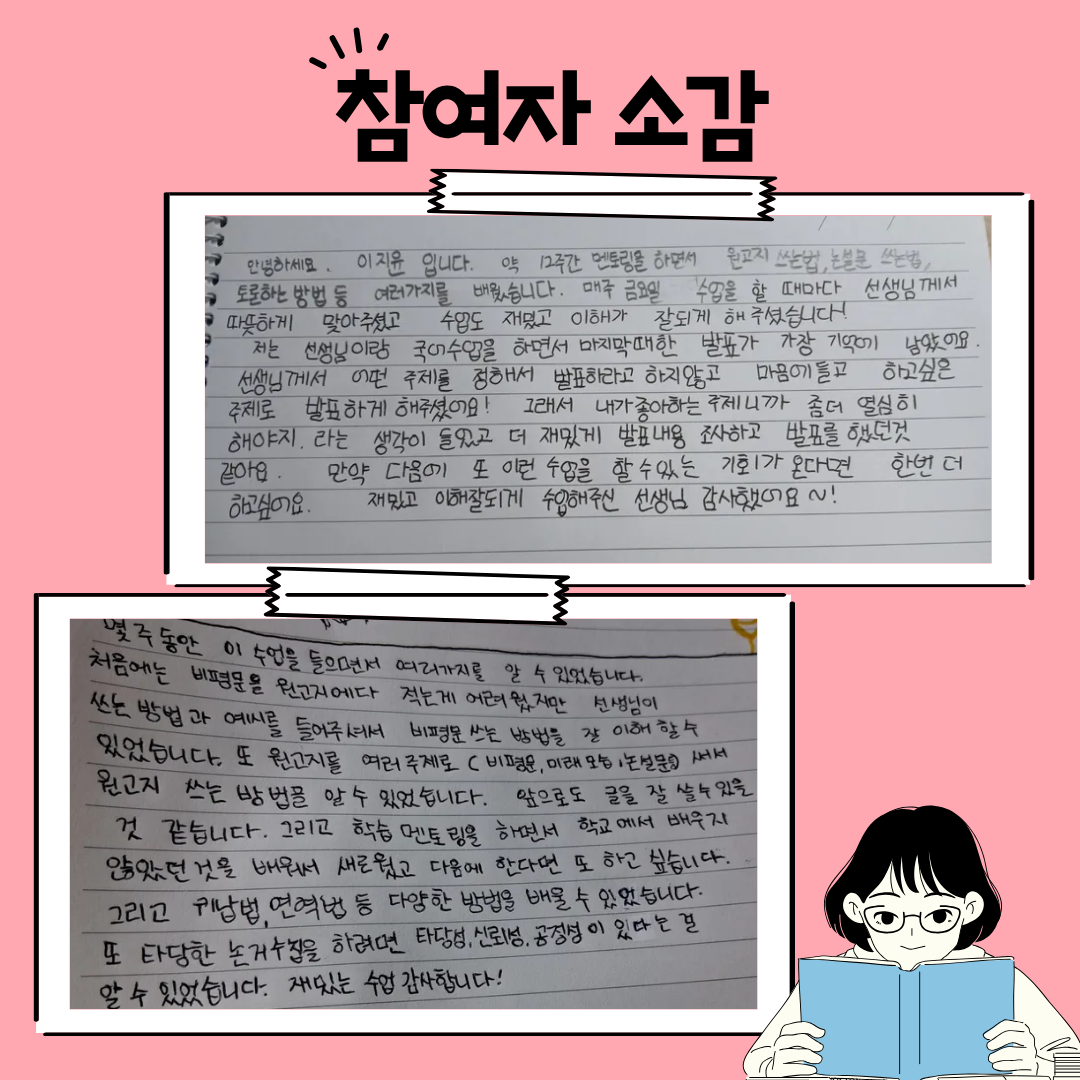 참여자 소감
안녕하세요. 이지윤 입니다. 약 12주간 멘토링을 하면서 원고지 쓰는법, 논설문 쓰는법,
토론하는 방법 등 여러가지를 배웠습니다. 매주 금요일 수업을 할 때마다 선생님께서
따뜻하게 맞아주셨고 수업도 재밌고 이해가 잘되게 해주셨습니다!
저는 선생님이랑 국어수업을 하면서 마지막때한 발표가 가장 기억에 남았어요.
선생님께서 어떤 주제를 정해서 발표하라고 하지않고 마음에 들고 하고싶은
주제로 발표하게 해주셨어요! 그래서 내가좋아하는 주제니까 좀더 열심히
해야지. 라는 생각이 들었고 더 재밌게 발표내용 조사하고 발표를 했던것
같아요. 만약 다음에 또 이런 수업을 할 수 있는 기회가 온다면 한번 더
하고싶어요. 재밌고 이해잘되게 수업해주신 선생님 감사했어요 ~!
몇 주 동안 이 수업을 들으면서 여러가지를 알 수 있었습니다.
처음에는 비평문을 원고지에다 적는게 어려웠지만 선생님이
쓰는 방법과 예시를 들어주셔서 비평문 쓰는 방법을 잘 이해 할 수
있었습니다. 또 원고지를 여러 주제로 (비평문, 미래 모습, 논설문) 써서
원고지 쓰는 방법을 알 수 있었습니다. 앞으로도 글을 잘 쓸 수 있을
것 같습니다. 그리고 학습 멘토링을 하면서 학교에서 배우지
않았던 것을 배워서 새로웠고 다음에 한다면 또 하고 싶습니다.
그리고 귀납법, 연역법 등 다양한 방법을 배울 수 있었습니다.
또 타당한 논거수집을 하려면 타당성, 신뢰성, 공정성이 있다는 걸
알 수 있었습니다. 재밌는 수업 감사합니다!